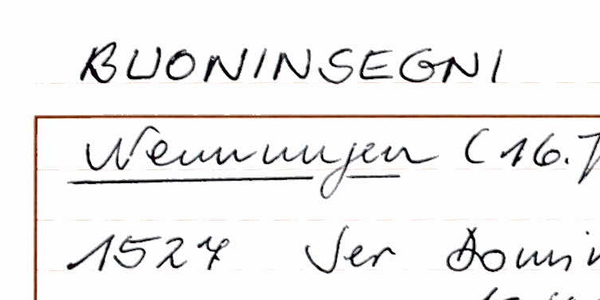 BUONINSEGNI
Nennungen (16.J
1527 Ser Domin